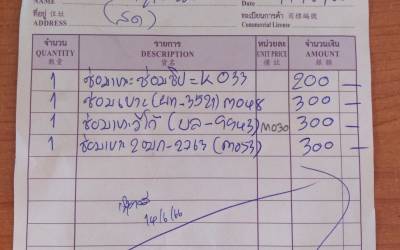 NAME
ที่อยู่ 住址 (สด)
ADDRESS
Date
ทะเบียนการค้า 商標編號
Commercial License
จำนวน รายการ หน่วยละ จำนวนเงิน
QUANTITY DESCRIPTION UNIT PRICE AMOUNT
數量 貨名 價註 銀額
1 ซ่อมเบาะ ซ่อมซิป = K033 200 —
1 ซ่อมเบาะ (ผท-3521) M048 300 —
1 ซ่อมเบาะวีโก้ (บล-9943) M030 300 —
1 ซ่อมเบาะ 2ฒก-2263 (M053) 300 —
14/6/66